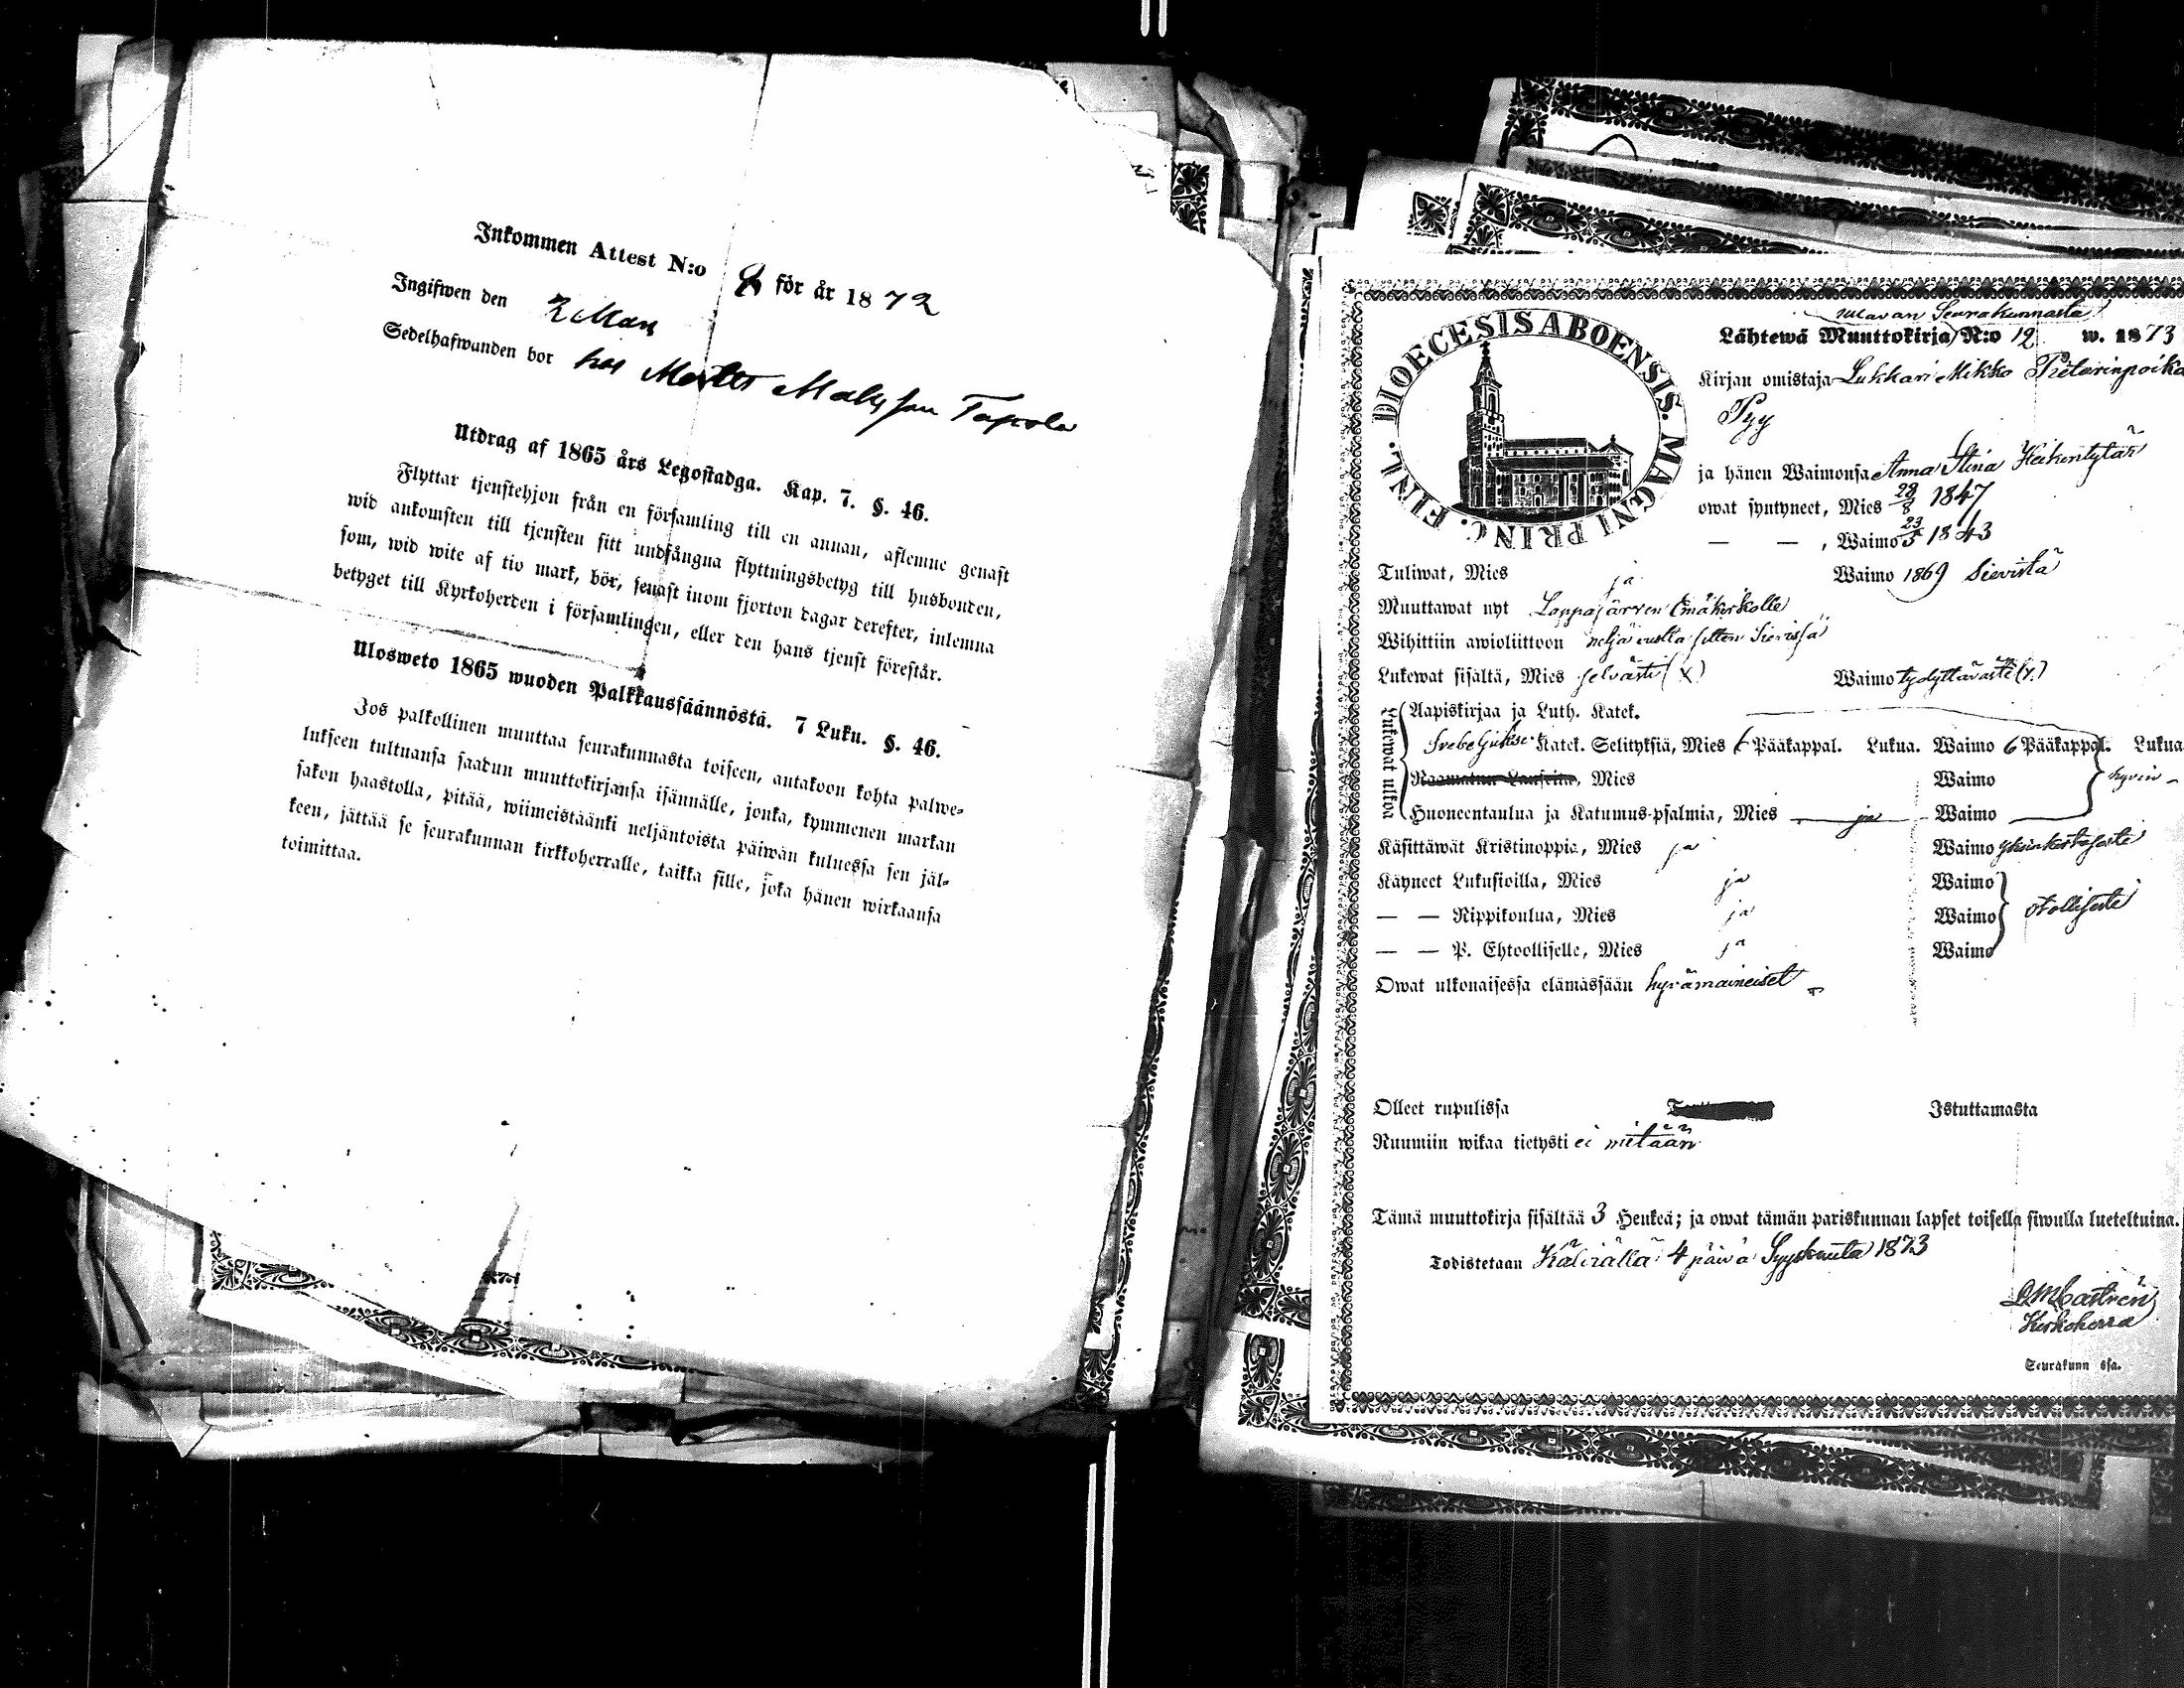 Inkommen Attest N:o 8 för år 1872
Ingifwen den 2 Mars
Sedelhafwanden bor hos Matts Tapola
Utdrag af 1865 års Legostadga. Kap. 7. §. 46.
Flyttar tjenstehjon från en församling till en annan, aflemne genast
wid ankomsten till tjensten sitt undfångna flyttningsbetyg till husbonden,
som, wid wite af tio mark, bör, senast inom fjorton dagar derefter, inlemna
betyget till Kyrkoherden i församlingen, eller den hans tjenst förestår.
Ulosweto 1865 wuoden Palkkaussäännöstä. 7 Luku. §. 46.
Jos palkollinen muuttaa seurakunnasta toiseen, antakoon kohta palwe-
lukseen tultuansa saadun muuttokirjansa isännälle, jonka, kymmenen markan
sakon haastolla, pitää, wiimeistäänki neljäntoista päiwän kuluessa sen jäl-
keen, jättää se seurakunnan kirkkoherralle, taikka sille, joka hänen wirkaansa
toimittaa.
DIOECESIS ABOENSIS. MAGNI PRINC. FINL.
Seurakunnasta
Lähtewä Muuttokirja N:o 12 w. 1873
Kirjan omistaja Lukkari Mikko Pietarinpoika
Pyy
ja hänen Waimonsa Anna Stina Heikintytär
owat syntyneet, Mies 28/8 1847
— — , Waimo 23/5 1843
Tuliwat, Mies ja Waimo 1869 Sievistä
Muuttawat nyt Lappajärven Emäkirkolle
Wihittiin awioliittoon neljä vuotta sitten Sievissä
Lukewat sisältä, Mies selvästi (x) Waimo tydyttävästi
Lukewat ulkoa
Aapiskirjaa ja Luth. Katek.
Svebeliuksen Katek. Selityksiä, Mies 6 Pääkappal. Lukua. Waimo 6 Pääkappal. Lukua
Raamatun Lauseita, Mies Waimo hyvin
Huoneentaulua ja Katumus-psalmia, Mies ja Waimo
Käsittäwät Kristinoppia, Mies ja Waimo yksinkertasesti
Käyneet Lukusioilla, Mies ja Waimo
— — Rippikoulua, Mies ja Waimo
— — P. Ehtoolliselle, Mies ja Waimo
Owat ulkonaisessa elämässään hyvämaineiset
Olleet rupulissa Istuttamasta
Ruumiin wikaa tietysti ei mitään
Tämä muuttokirja sisältää 3 Henkeä; ja owat tämän pariskunnan lapset toisella siwulla lueteltuina.
Todistetaan Kälviällä 4 päivä Syyskuuta 1873
Castrén
Kirkoherra
Seurakunn ssa.